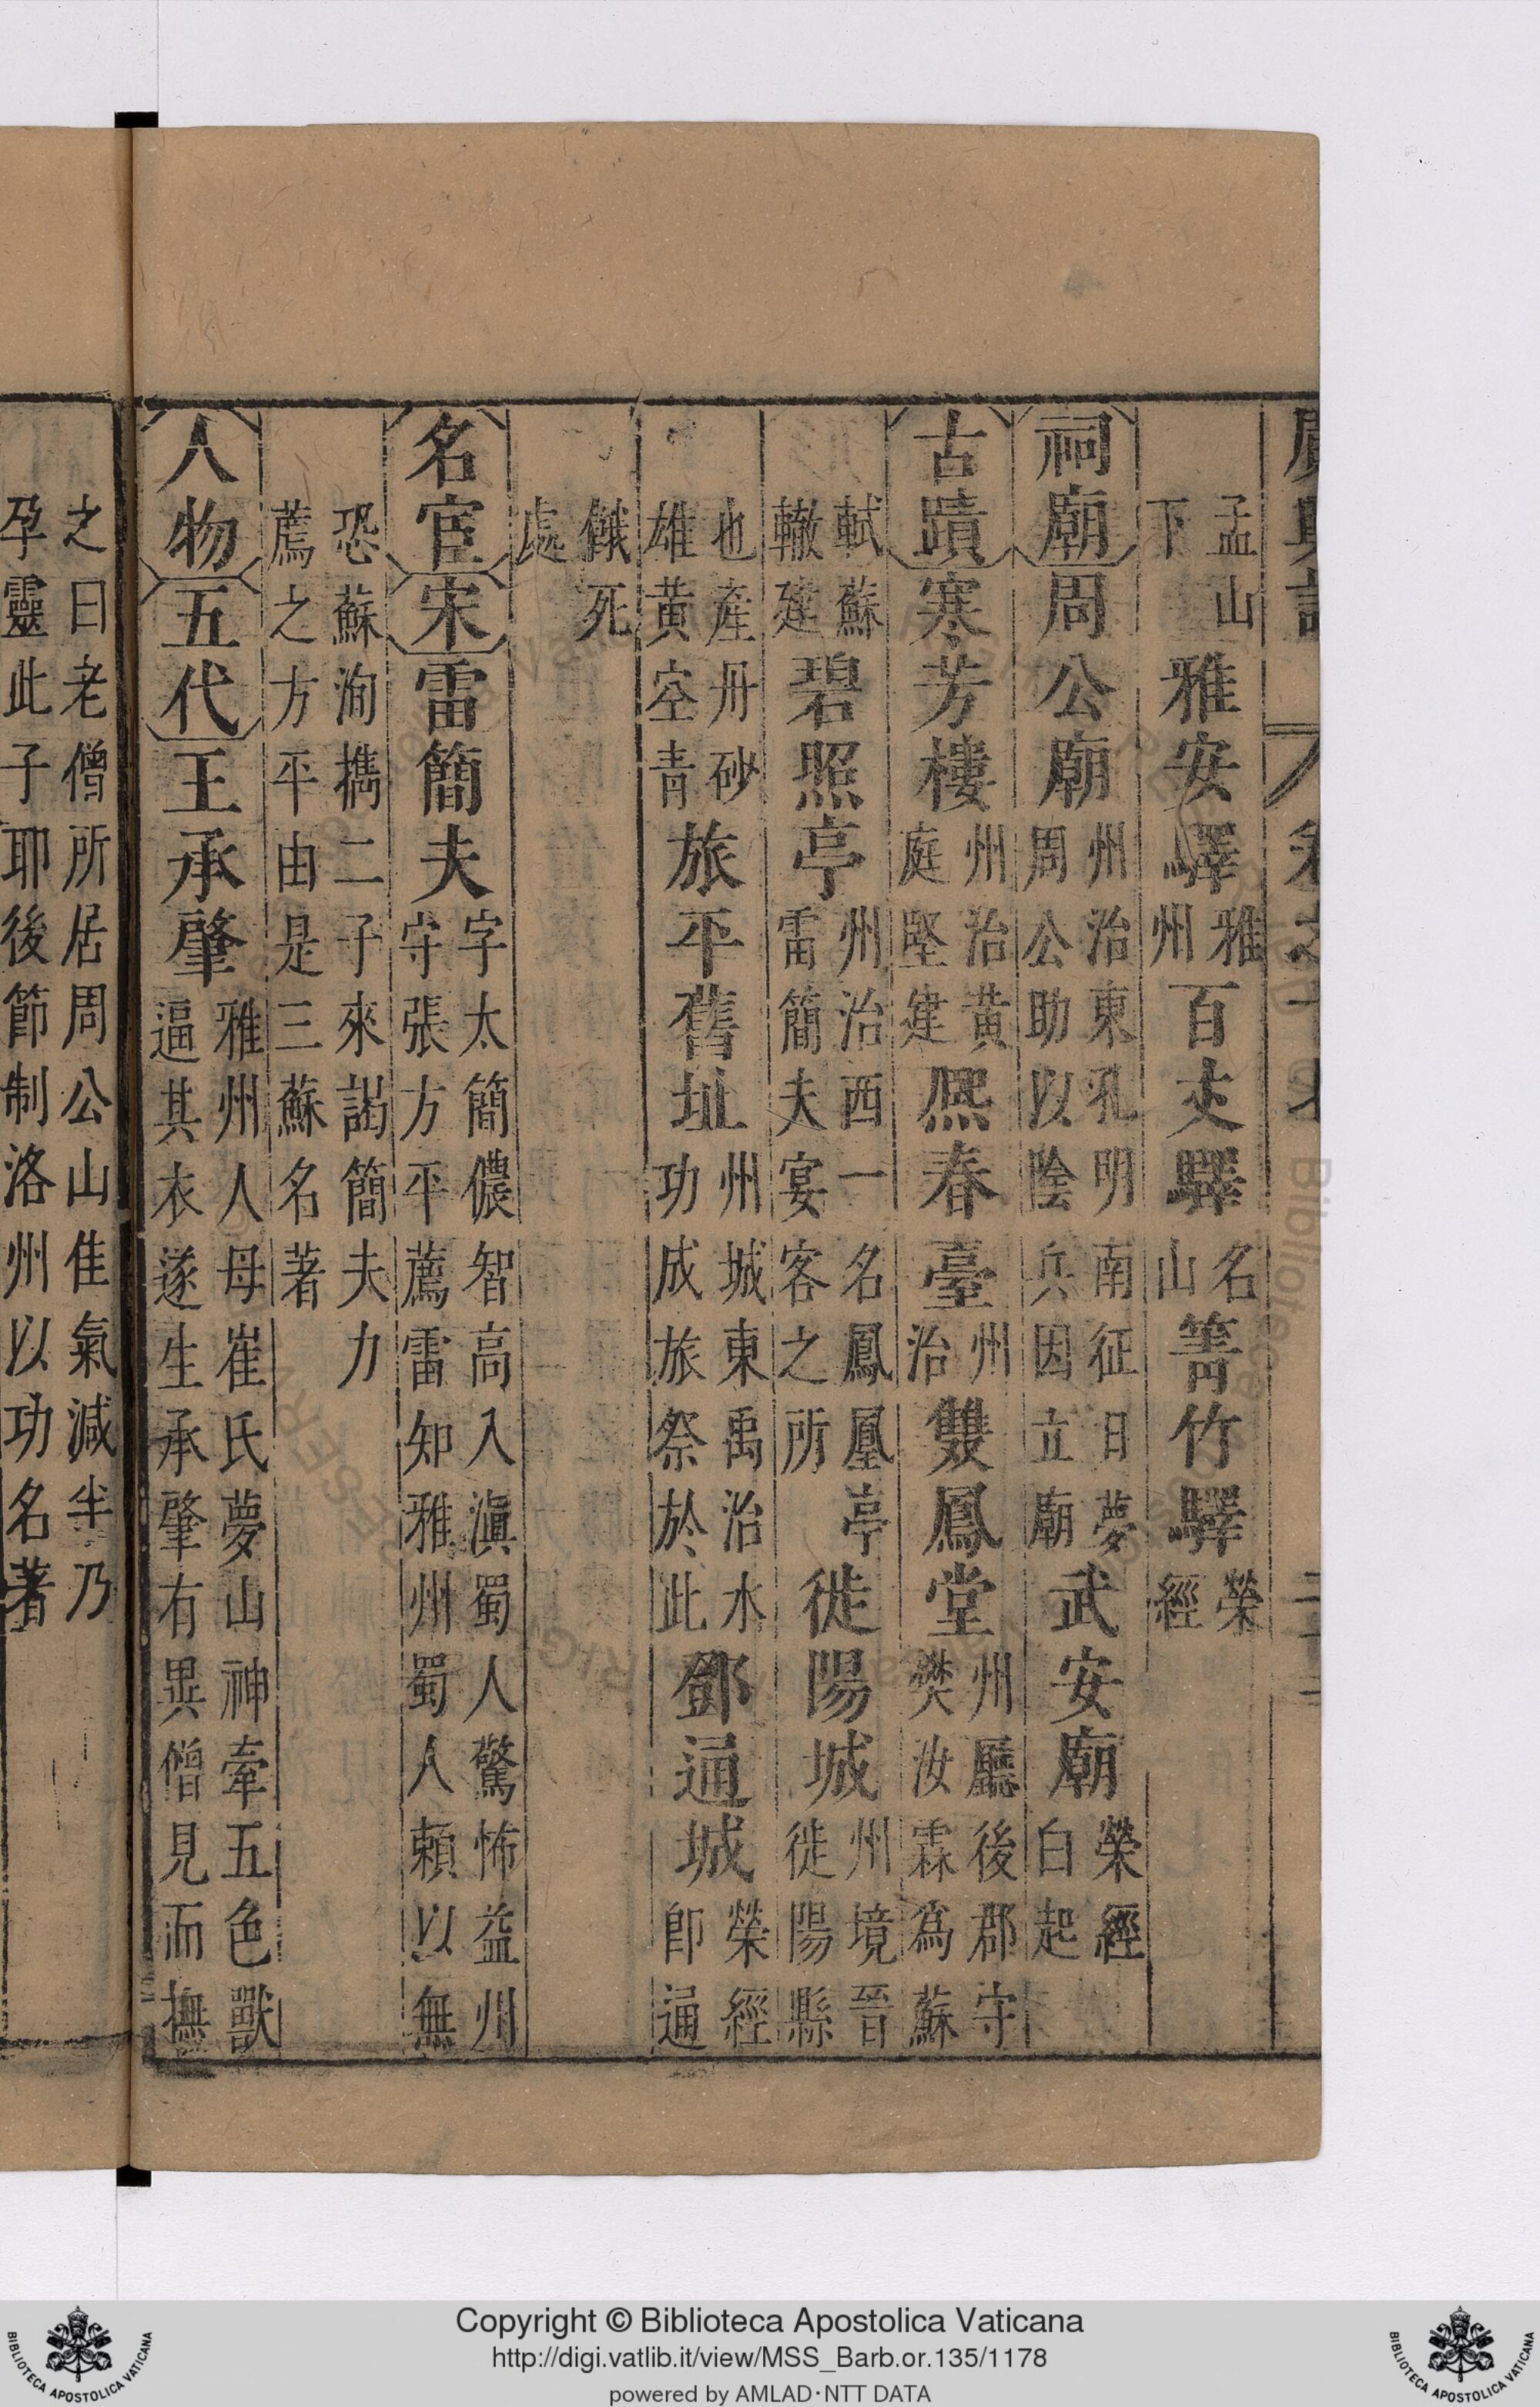 孟山下雅安驛雅州百丈驛名山箐竹驛榮經
祠廟周公廟州治東孔明南征日夢周公助以陰兵因立廟武安廟榮經白起
古蹟寒芳樓州治黃庭堅建熈春臺州治雙鳳堂州廳後郡守樊汝霖爲蘇
軾蘇轍建碧照亭州治西一名鳳凰亭雷簡夫宴客之所徙陽城州境晉徙陽縣
也產丹砂雄黃空青旅平舊址州城東禹治水功成旅祭於此鄧通城榮經卽通
餓死處
名宦宋雷簡夫字太簡儂智高入滇蜀人驚怖益州守張方平薦雷知雅州蜀人賴以無
恐蘇洵攜二子來謁簡夫力薦之方平由是三蘇名著
人物五代王承肇雅州人母崔氏夢山神牽五色獸逼其衣遂生承肇有異僧見而撫
之曰老僧所居周公山佳氣減半乃孕靈此子耶後節制洛州以功名著
Copyright © Biblioteca Apostolica Vaticana
http://digi.vatlib.it/view/MSS_Barb.or.135/1178
powered by AMLAD·NTT DATA
BIBLIOTECA APOSTOLICA VATICANA
BIBLIOTECA APOSTOLICA VATICANA